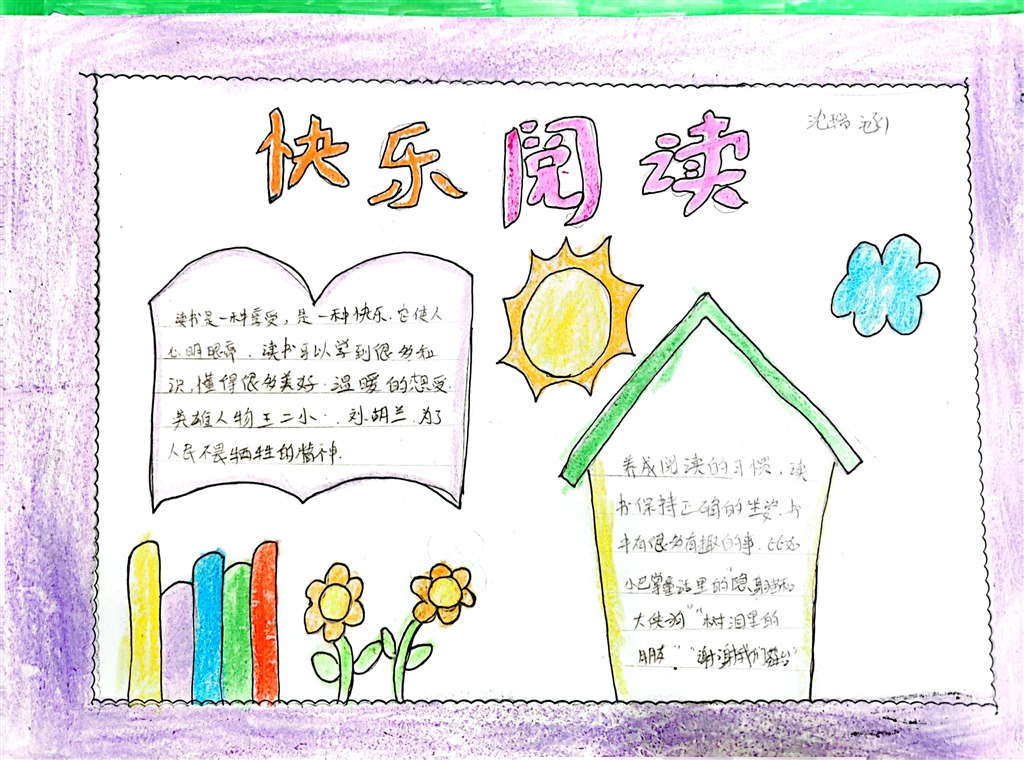 快乐阅读
沈瑞涵
读书是一种享受，是一种快乐.它使人
心明眼亮.读书可以学到很多知
识,懂得很多美好.温暖的想受.
英雄人物王二小.刘胡兰.为了
人民不畏牺牲的精神.
养成阅读的习惯,读
书保持正确的坐姿.书
中有很多有趣的事.比如
小巴掌童话里的"隐身猫和
大侠狗""树洞里的
朋友""谢谢我们